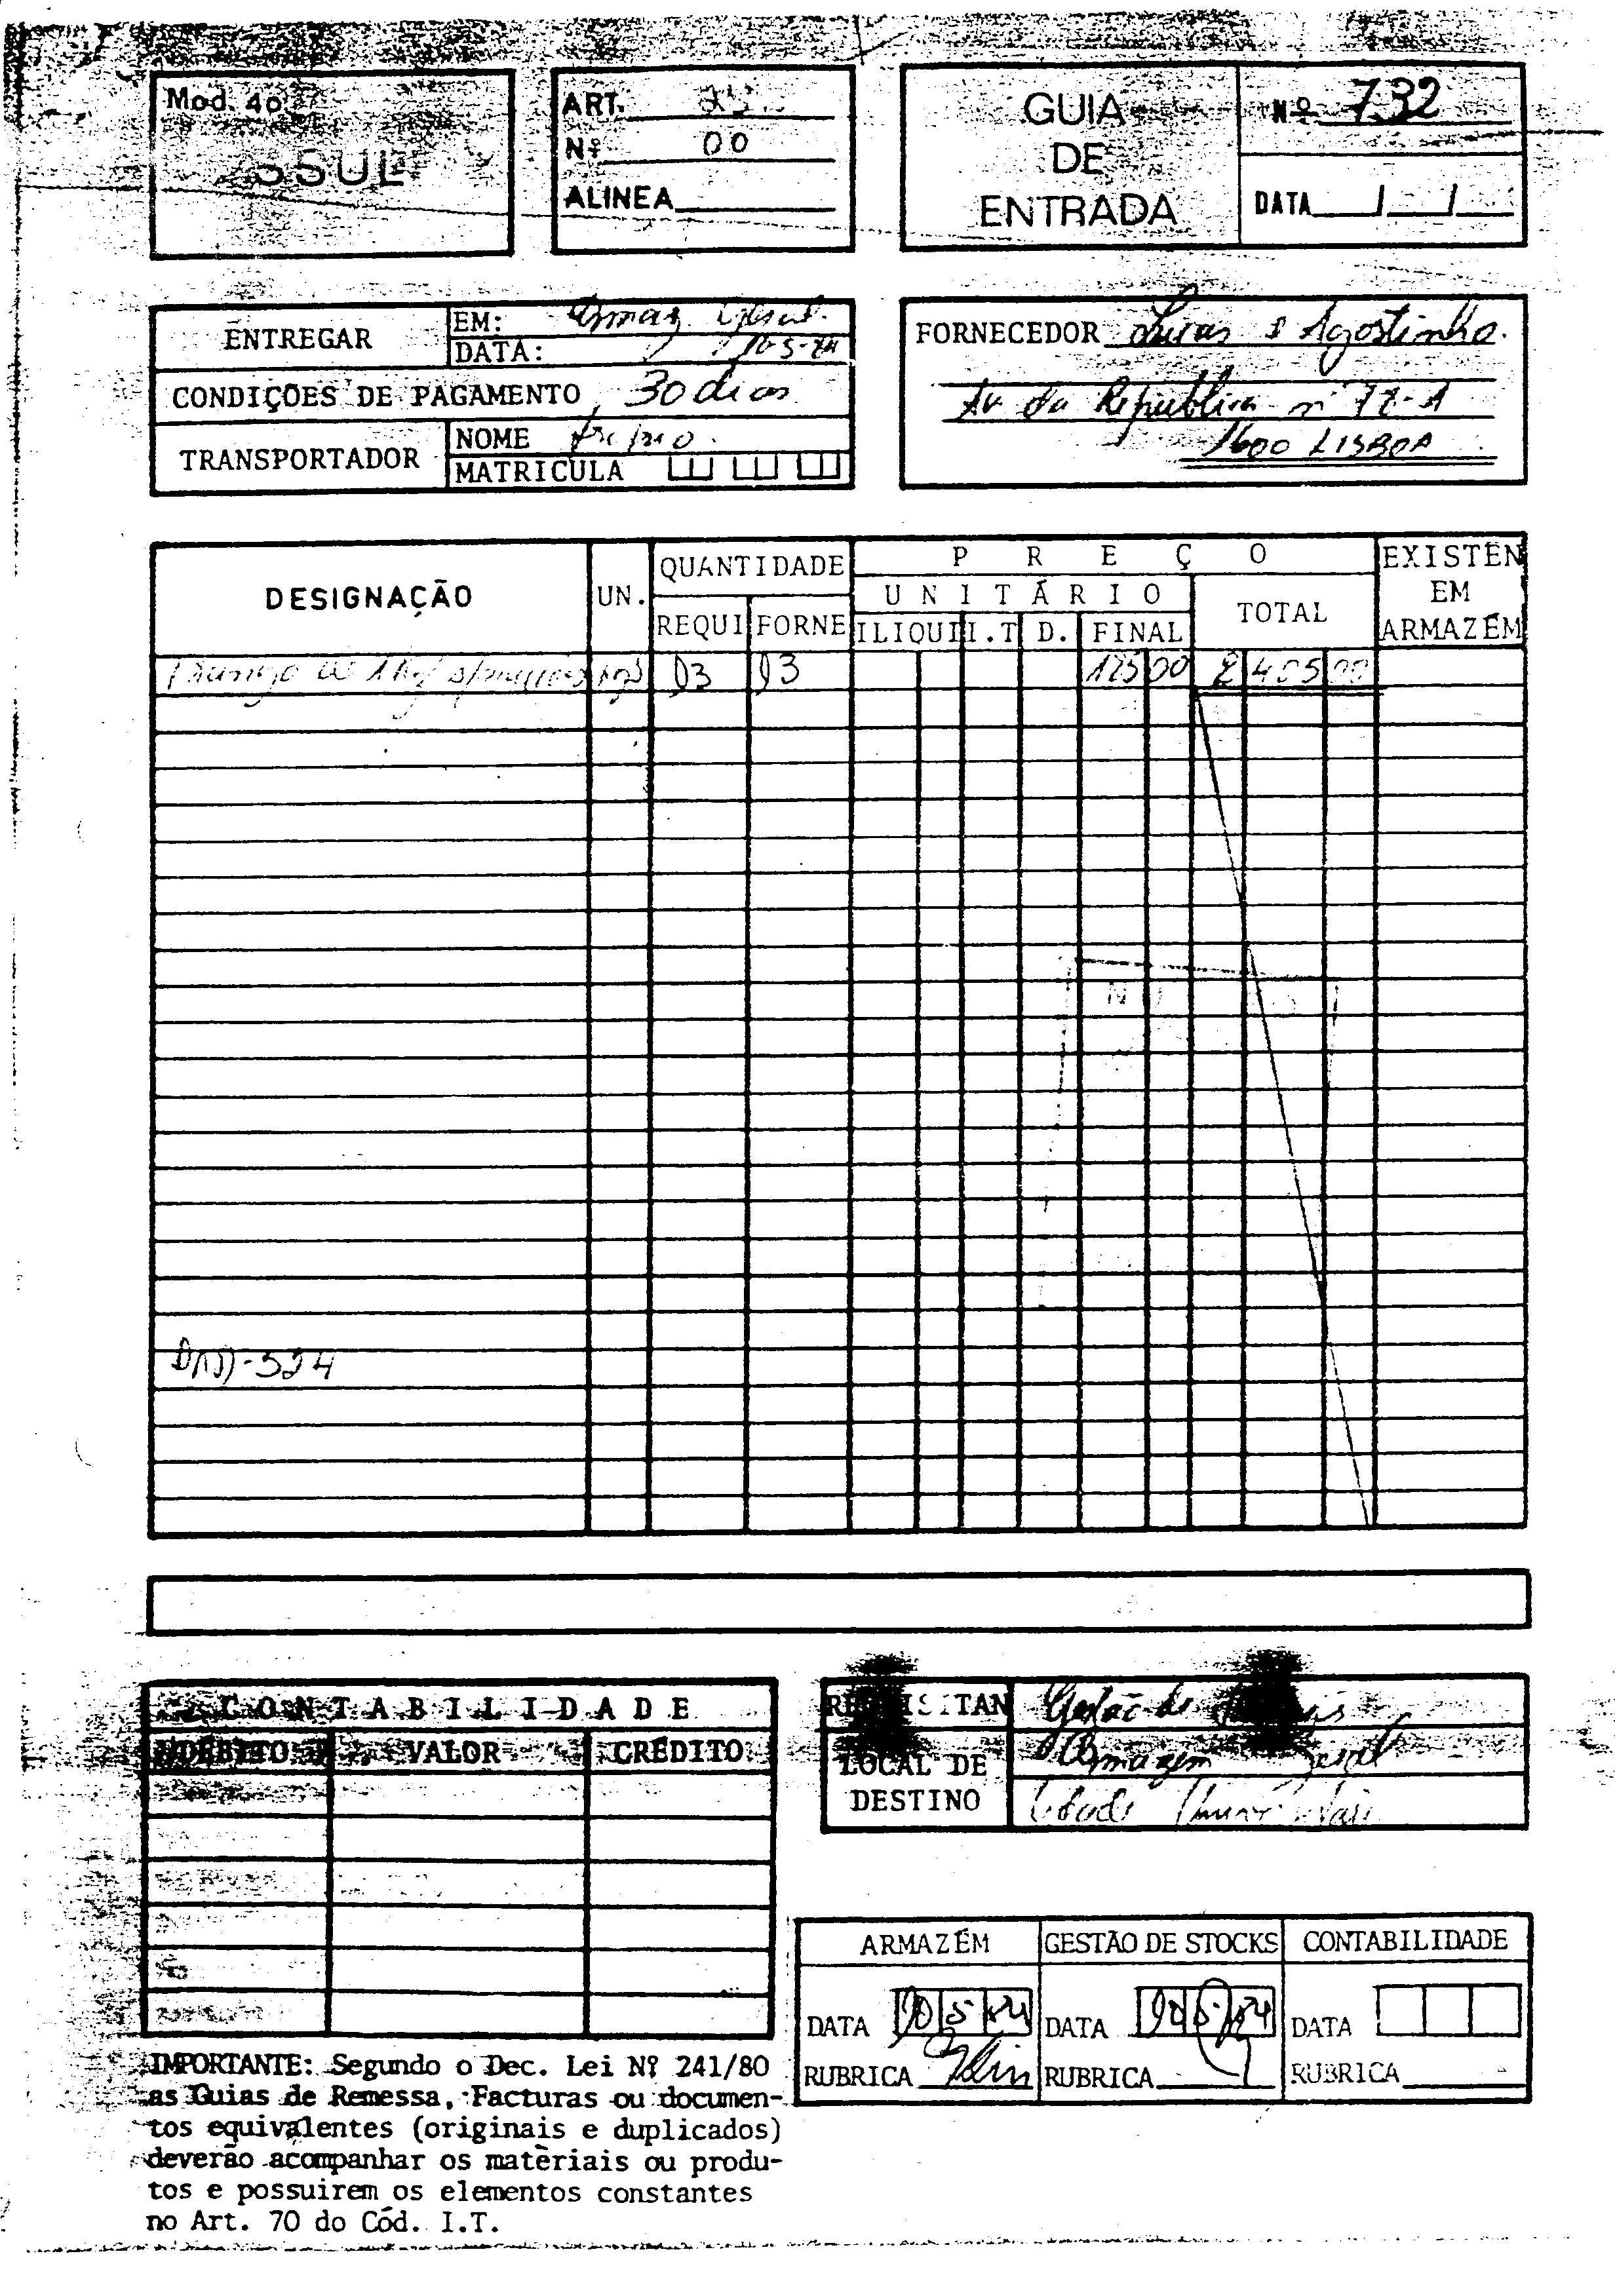 Mod. 40
SSUL
ART.
Nº 00
ALINEA
GUIA
DE
ENTRADA
Nº 732
DATA / /
ENTREGAR
EM: Armaz Geral.
DATA:
CONDIÇÕES DE PAGAMENTO 30 dias
TRANSPORTADOR
NOME
MATRICULA
FORNECEDOR Lucas & Agostinho.
Av da República nº
1600 LISBOA
DESIGNAÇÃO
UN.
QUANTIDADE
REQUI FORNE
P R E Ç O
U N I T Á R I O
ILIQUI I.T D. FINAL
TOTAL
EXISTÊN
EM
ARMAZÉM
Frango kgs 125 00 2 405 00
C O N T A B I L I D A D E
DÉBITO VALOR CRÉDITO
REQUISITAN Gestão de
LOCAL DE
DESTINO
Armazem Geral
Cidade Universitária
ARMAZÉM
DATA
RUBRICA
GESTÃO DE STOCKS
DATA
RUBRICA
CONTABILIDADE
DATA
RUBRICA
IMPORTANTE: Segundo o Dec. Lei Nº 241/80
as Guias de Remessa, Facturas ou documen-
tos equivalentes (originais e duplicados)
deverão acompanhar os matèriais ou produ-
tos e possuirem os elementos constantes
no Art. 70 do Cód. I.T.